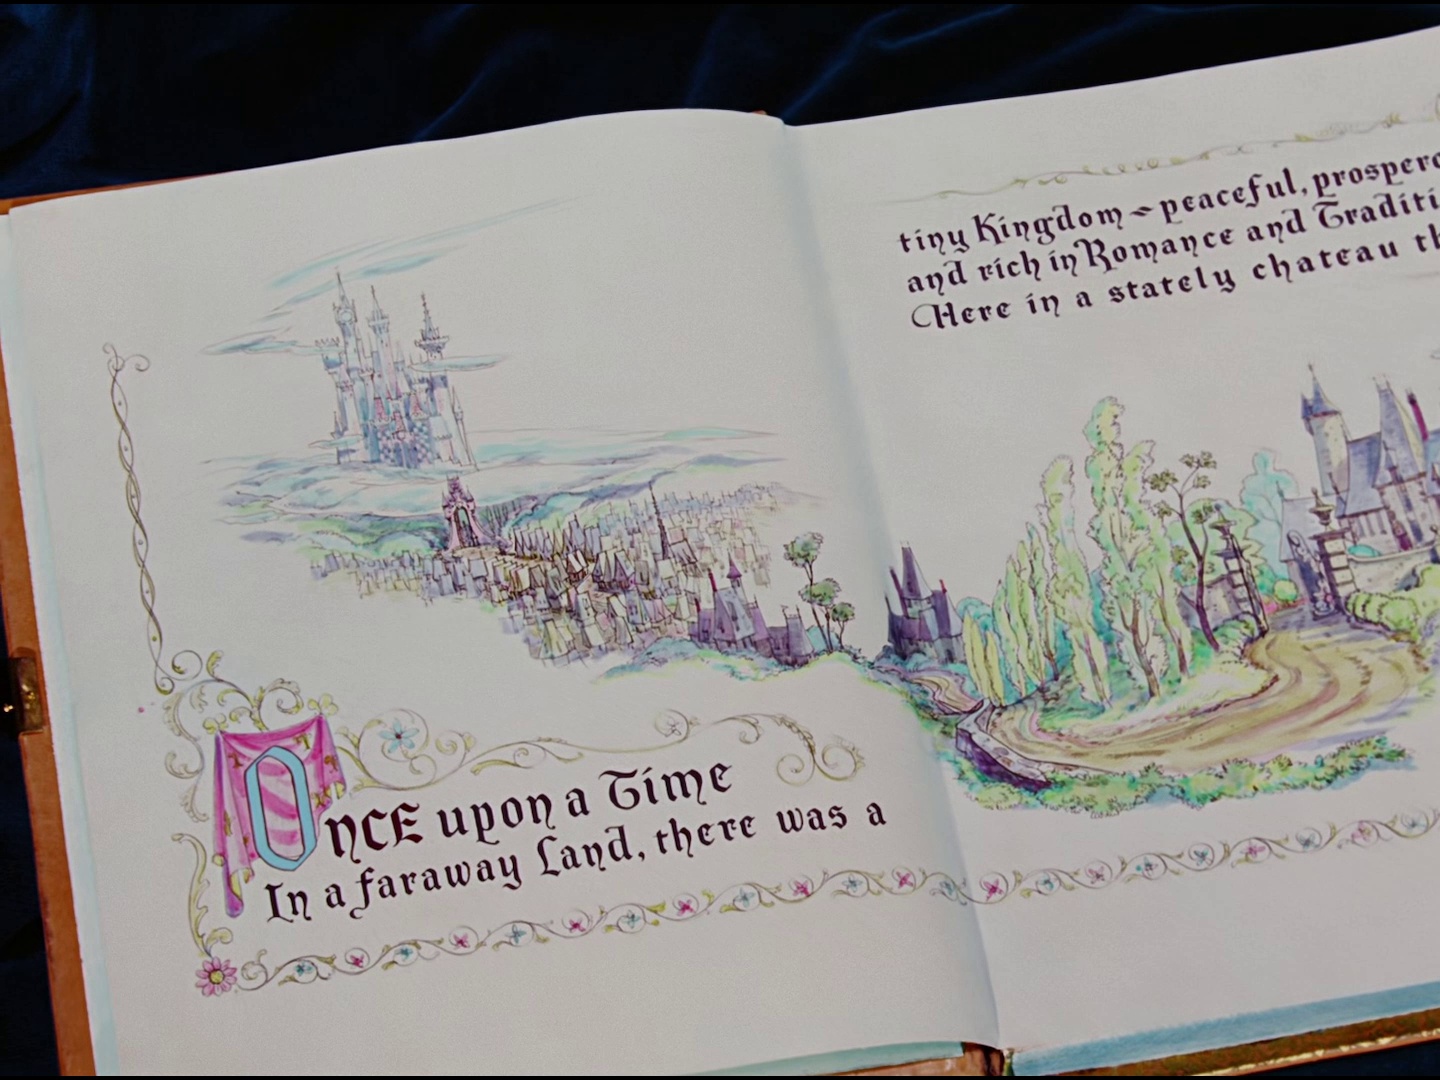 Once upon a Time
In a faraway Land, there was a
tiny Kingdom ~ peaceful, prospero
and rich in Romance and Traditi
Here in a stately chateau th